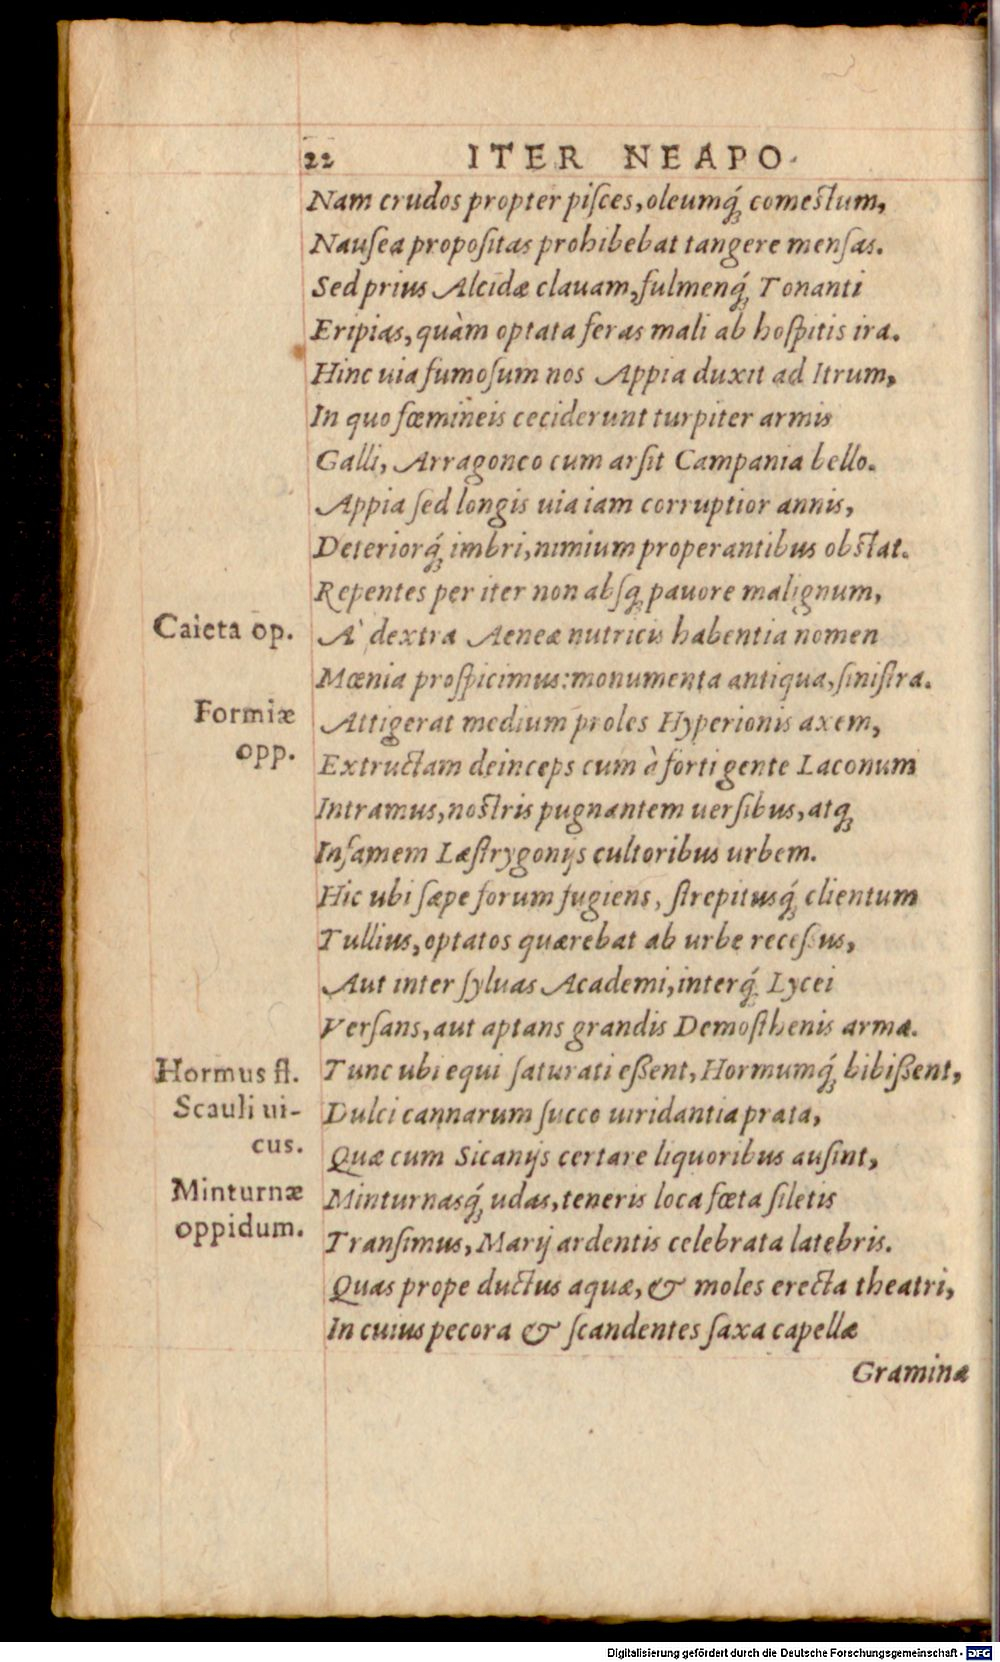 22 ITER NEAPO.
Nam crudos propter piſces, oleumq́; comeſtum,
Nauſea propoſitas prohibebat tangere menſas.
Sed prius Alcidæ clauam, fulmenq́; Tonanti
Eripias, quàm optata feras mali ab hoſpitis ira.
Hinc uia fumoſum nos Appia duxit ad Itrum,
In quo fœmineis ceciderunt turpiter armis
Galli, Arragoneo cum arſit Campania bello.
Appia ſed longis uia iam corruptior annis,
Deteriorq́; imbri, nimium properantibus obſtat.
Repentes per iter non abſq; pauore malignum,
Caieta op.
A' dextra Aeneæ nutricis habentia nomen
Mœnia proſpicimus: monumenta antiqua, ſiniſtra.
Formiæ
opp.
Attigerat medium proles Hyperionis axem,
Extructam deinceps cum à forti gente Laconum
Intramus, noſtris pugnantem uerſibus, atq;
Infamem Læſtrygonijs cultoribus urbem.
Hic ubi ſæpe forum fugiens, ſtrepitusq́; clientum
Tullius, optatos quærebat ab urbe receſſus,
Aut inter ſyluas Academi, interq́; Lycei
Verſans, aut aptans grandis Demoſthenis arma.
Hormus fl.
Tunc ubi equi ſaturati eßent, Hormumq́; bibißent,
Scauli ui-
cus.
Dulci cannarum ſucco uiridantia prata,
Quæ cum Sicanijs certare liquoribus auſint,
Minturnæ
oppidum.
Minturnasq́; udas, teneris loca fœta ſiletis
Tranſimus, Marij ardentis celebrata latebris.
Quas prope ductus aquæ, & moles erecta theatri,
In cuius pecora & ſcandentes ſaxa capellæ
Gramina
Digitalisierung gefördert durch die Deutsche Forschungsgemeinschaft - DFG